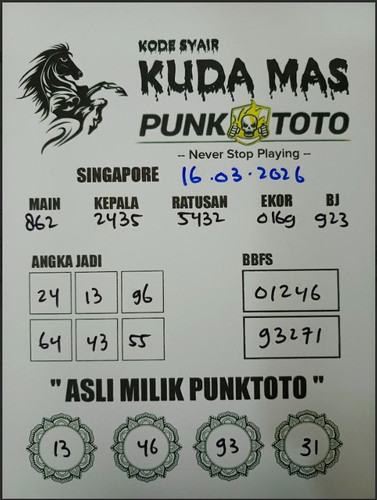 KODE SYAIR
KUDA MAS
PUNK TOTO
-- Never Stop Playing --
SINGAPORE 16.03.2026
MAIN KEPALA RATUSAN EKOR BJ
862 2435 5432 0169 923
ANGKA JADI BBFS
24 13 96 01246
64 43 55 93271
" ASLI MILIK PUNKTOTO "
13 46 93 31